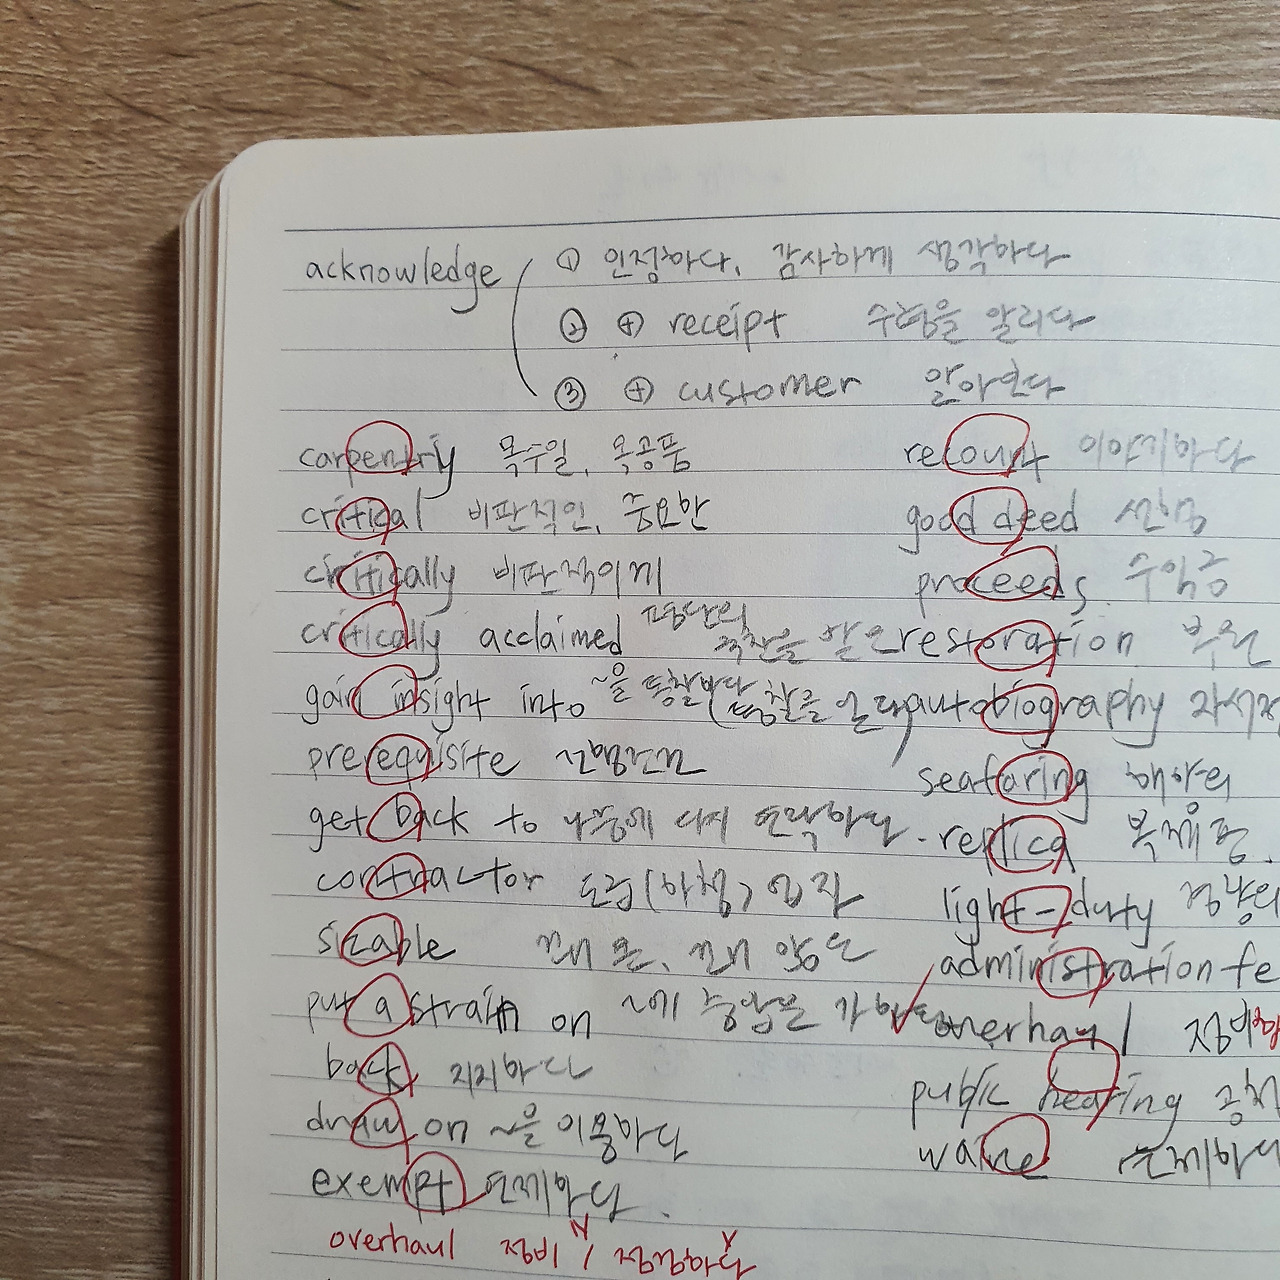 acknowledge ① 인정하다, 감사하게 생각하다
② ⊕ receipt 수령을 알리다
③ ⊕ customer 알아본다
carpentry 목수일, 목공품
critical 비판적인, 중요한
critically 비판적이게
critically acclaimed 평단의 극찬을 받은
gain insight into ~을 통찰하다 통찰력을 얻다
prerequisite 선행조건
get back to 나중에 다시 연락하다
contractor 도급(하청)업자
sizable 꽤 큰, 꽤 많은
put a strain on ~에 중압을 가하다
back 지지하다
draw on ~을 이용하다
exempt 면제하다.
overhaul 정비 N / 점검하다 V
recount 이야기하다
good deed 선행
proceeds 수익금
restoration 복원
autobiography 자서전
seafaring 해양의
replica 복제품.
light-duty 경량의
administration fe
overhaul 정비
public hearing 공청
waive 면제하다